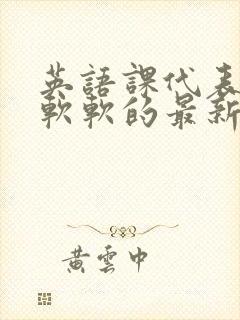 英語課代表
軟軟的最新
黃雲中